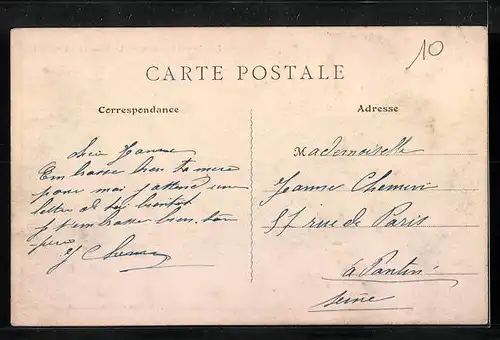 10
CARTE POSTALE
Correspondance
Chère Jeanne
Embrasse bien ta mère
pour moi j'attend une
letter de toi bientot
je t'embrasse bien ton
père
Adresse
Mademoiselle
Jeanne
57 rue de Paris
à Pantin
Seine